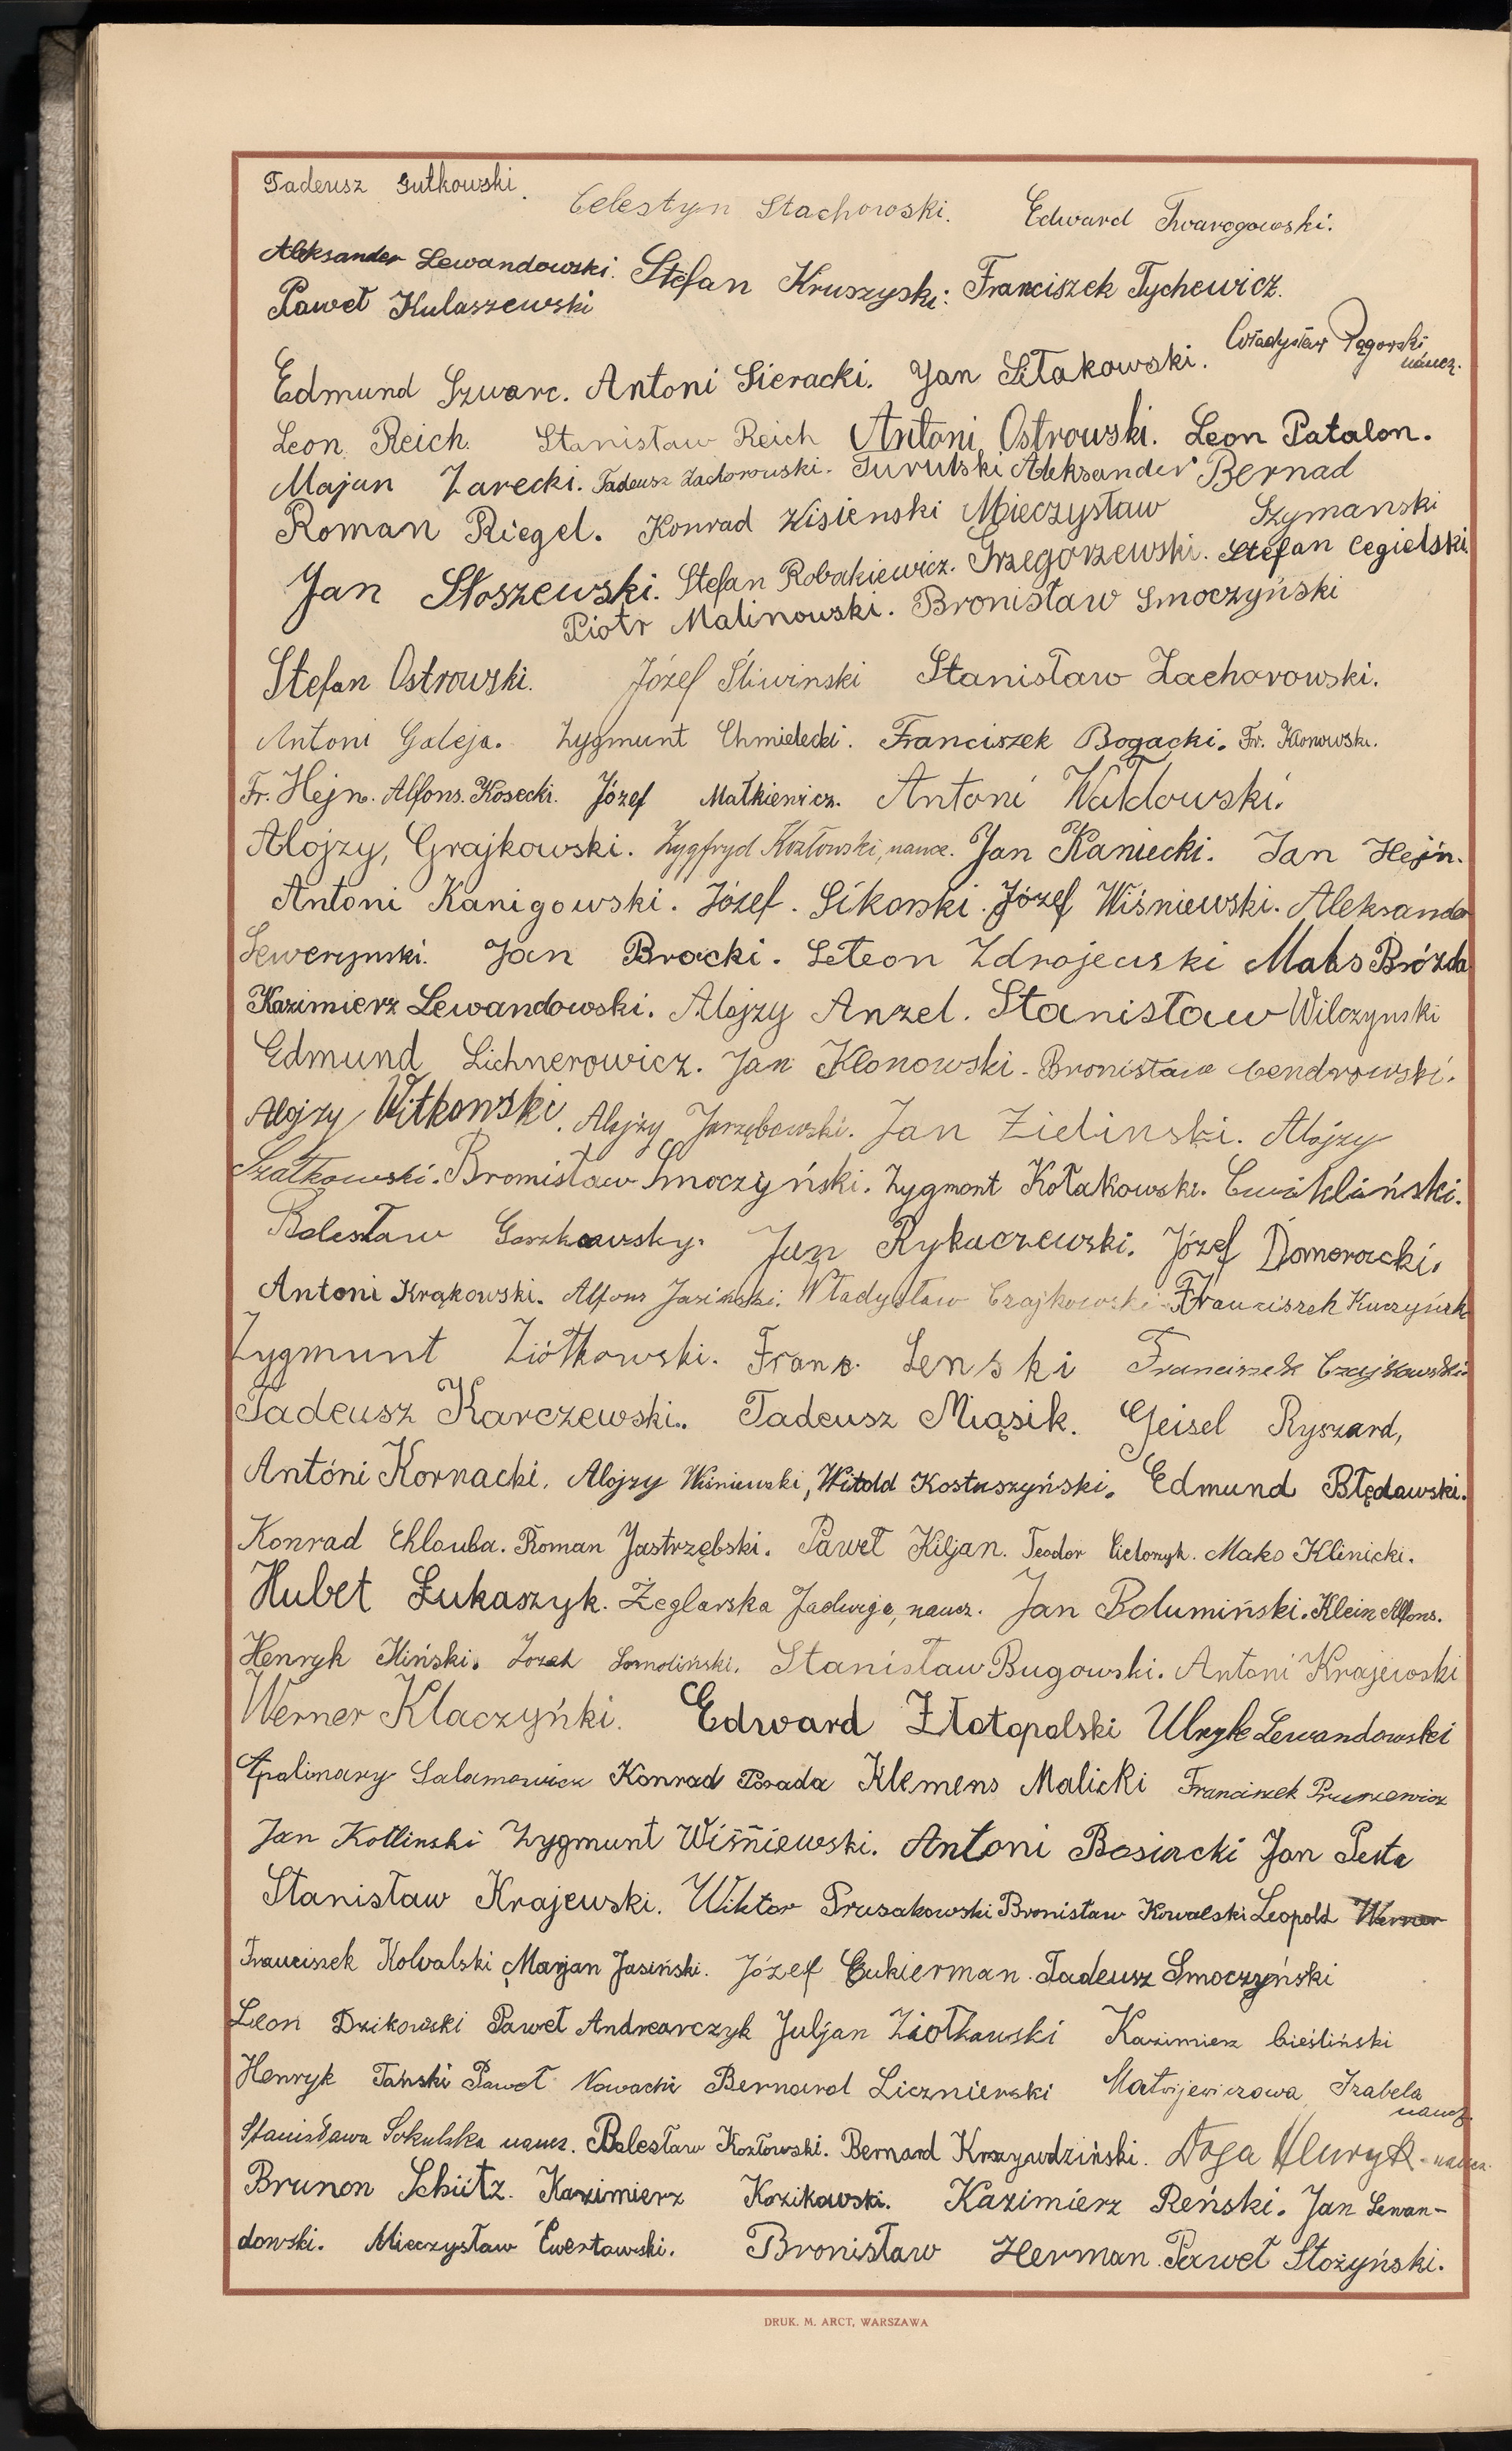 Tadeusz Gutkowski. Celestyn Stachowski. Edward Twarogowski.
Aleksander Lewandowski. Stefan Kruszyski. Franciszek Tychewicz.
Paweł Kulaszewski
Edmund Szwarc. Antoni Sieracki. Jan Sitakowski. Władysław naucz.
Leon Reich. Stanisław Reich Antoni Ostrowski. Leon Patalon.
Majan Zarecki. Tadeusz Zachorowski. Turulski Aleksander Bernad
Roman Riegel. Konrad Wisienski Mieczysław Szymanski
Jan Słoszewski. Stefan Robakiewicz. Grzegorzewski. Stefan Cegielski
Piotr Malinowski. Bronisław Smoczyński
Stefan Ostrowski. Józef Śliwinski Stanisław Zachorowski.
Antoni Galeja. Zygmunt Chmielecki. Franciszek Bogacki. Fr. Klonowski.
Fr. Hejn. Alfons. Kosecki. Józef Małkiewicz. Antoni Wałdowski.
Alojzy, Grajkowski. Zygfryd Kozłowski, naucz. Jan Kaniecki. Jan Hejn.
Antoni Kanigowski. Józef. Sikorski. Józef Wiśniewski. Aleksander
Sewerynski. Jan Bracki. Seteon Zdrojewski Maks Brózda
Kazimierz Lewandowski. Alojzy Anzel. Stanisław Wilczynski
Edmund Lichnerowicz. Jan Klonowski. Bronisław Cendrowski.
Alojzy Witkowski. Alojzy Jarzębowski. Jan Zielinski. Alojzy
Szałkowski. Bromisław Smoczyński. Zygmont Kołakowski. Cwikliński.
Bolesław Goszkowsky. Jan Rykaczewski. Józef Domoracki.
Antoni Krąkowski. Alfons Jasinski. Władysław Czajkowski. Franciszek Kuczyńsk
Zygmunt Ziółkowski. Frank. Lenski Franciszek Czajkowski
Tadeusz Karczewski. Tadeusz Miąsik. Geisel Ryszard,
Antóni Kornacki. Alojzy Wiśniewski, Witold Kostuszyński. Edmund Błędawski.
Konrad Chlouba. Roman Jastrzębski. Paweł Kiljan. Teodor Cielczyk. Maks Klinicki.
Hubet Łukaszyk. Żeglarska Jadwiga, naucz. Jan Bolumiński. Klein Alfons.
Henryk Iliński. Jozeh Somoliński. Stanisław Bugowski. Antoni Krajewski
Werner Klaczyńki. Edward Złotopolski Ulryk Lewandowski
Apolinary Salamowicz Konrad Posada Klemens Malicki Franciszek Pruszewicz
Jan Kotlinski Zygmunt Wiśńiewski. Antoni Bosiacki Jan Pesta
Stanisław Krajewski. Wiktor Prusakowski Bronisław Kowalski Leopold Werner
Franciszek Kowalski Marjan Jasiński. Józef Cukierman. Tadeusz Smoczyński
Leon Dzikowski Paweł Andrearczyk Juljan Ziołkowski Kazimierz Cieśliński
Henryk Tański Paweł Nowacki Bernard Licznierski Matwijewiczowa Izabela naucz.
Stanisława Sokulska naucz. Bolesław Kozłowski. Bernard Krzywdziński. Doga Henryk - naucz.
Brunon Schütz. Kazimierz Kozikowski. Kazimierz Reński. Jan Lewan-
dowski. Mieczysław Ewertowski. Bronisław Herman. Paweł Stożyński.
DRUK. M. ARCT, WARSZAWA